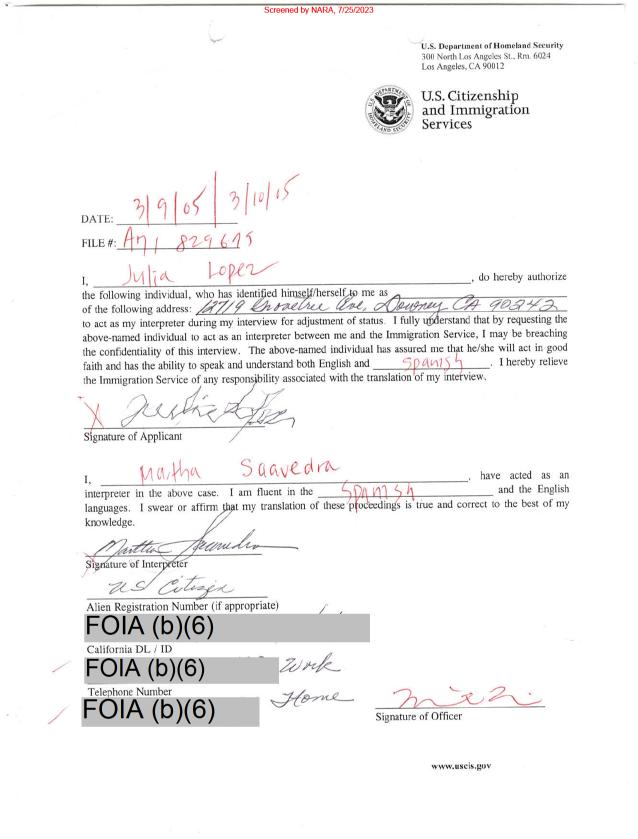 Screened by NARA, 7/25/2023
U.S. Department of Homeland Security
300 North Los Angeles St., Rm. 6024
Los Angeles, CA 90012
U.S. Citizenship
and Immigration
Services
DATE: 3/9/05 | 3/10/05
FILE #: A71 829675
I, Julia Lopez, do hereby authorize
the following individual, who has identified himself/herself to me as
of the following address: 12719 Grovetree Ave, Downey CA 90242
to act as my interpreter during my interview for adjustment of status. I fully understand that by requesting the
above-named individual to act as an interpreter between me and the Immigration Service, I may be breaching
the confidentiality of this interview. The above-named individual has assured me that he/she will act in good
faith and has the ability to speak and understand both English and Spanish. I hereby relieve
the Immigration Service of any responsibility associated with the translation of my interview.
X
Signature of Applicant
I, Martha Saavedra, have acted as an
interpreter in the above case. I am fluent in the Spanish and the English
languages. I swear or affirm that my translation of these proceedings is true and correct to the best of my
knowledge.
Martha Saavedra
Signature of Interpreter
US Citizen
Alien Registration Number (if appropriate)
FOIA (b)(6)
California DL / ID
FOIA (b)(6) Work
Telephone Number
FOIA (b)(6) Home
Signature of Officer
www.uscis.gov